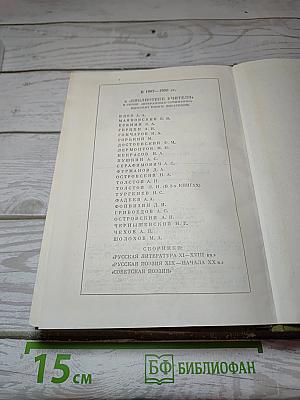 В 1987—1990 гг.
в «БИБЛИОТЕКЕ УЧИТЕЛЯ»
БЛОК А. А.
МАЯКОВСКИЙ В. В.
ЕСЕНИН С. А.
ГЕРЦЕН А. И.
ГОНЧАРОВ И. А.
ГОРЬКИЙ М.
ДОСТОЕВСКИЙ Ф. М.
ЛЕРМОНТОВ М. Ю.
НЕКРАСОВ Н. А.
ПУШКИН А. С.
СЕРАФИМОВИЧ А. С.
ФУРМАНОВ Д. А.
ОСТРОВСКИЙ Н. А.
ТОЛСТОЙ А. Н.
ТОЛСТОЙ Л. Н. (В 3-х КНИГАХ)
ТУРГЕНЕВ И. С.
ФАДЕЕВ А. А.
ФОНВИЗИН Д. И.
ГРИБОЕДОВ А. С.
ОСТРОВСКИЙ А. Н.
ЧЕРНЫШЕВСКИЙ Н. Г.
ЧЕХОВ А. П.
ШОЛОХОВ М. А.
СБОРНИКИ:
«РУССКАЯ ЛИТЕРАТУРА XI—XVIII вв.»
«РУССКАЯ ПОЭЗИЯ XIX — НАЧАЛА XX в.»
«СОВЕТСКАЯ ПОЭЗИЯ»
15 СМ
БФ БИБЛИОФАН